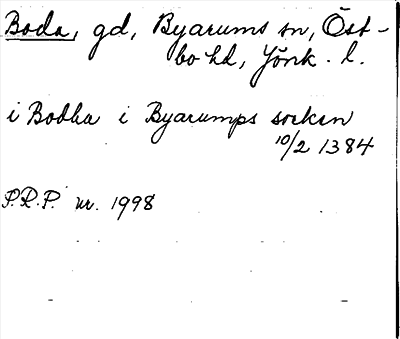 Boda, gd, Byarums sn, Öst-
bo hd, Jönk. l.
i Bodha i Byarumps socken
10/2 1384
P.R.P. nr. 1998